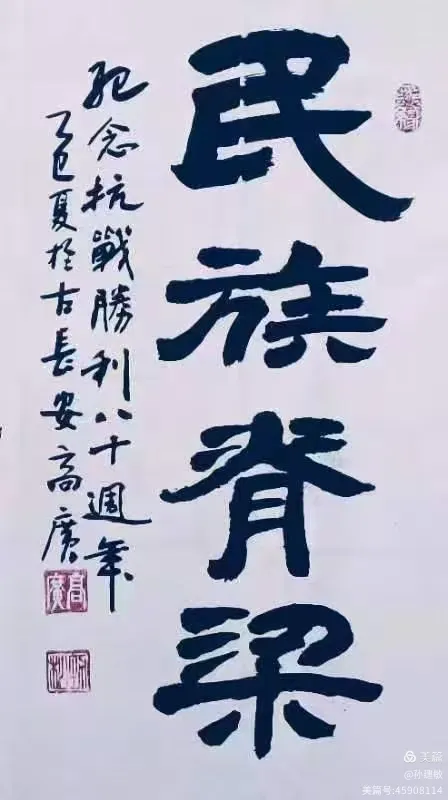 民族脊梁
紀念抗戰勝利八十週年
乙巳夏於古長安高廣
高廣
美篇
@孙建敏
美篇号:45908114